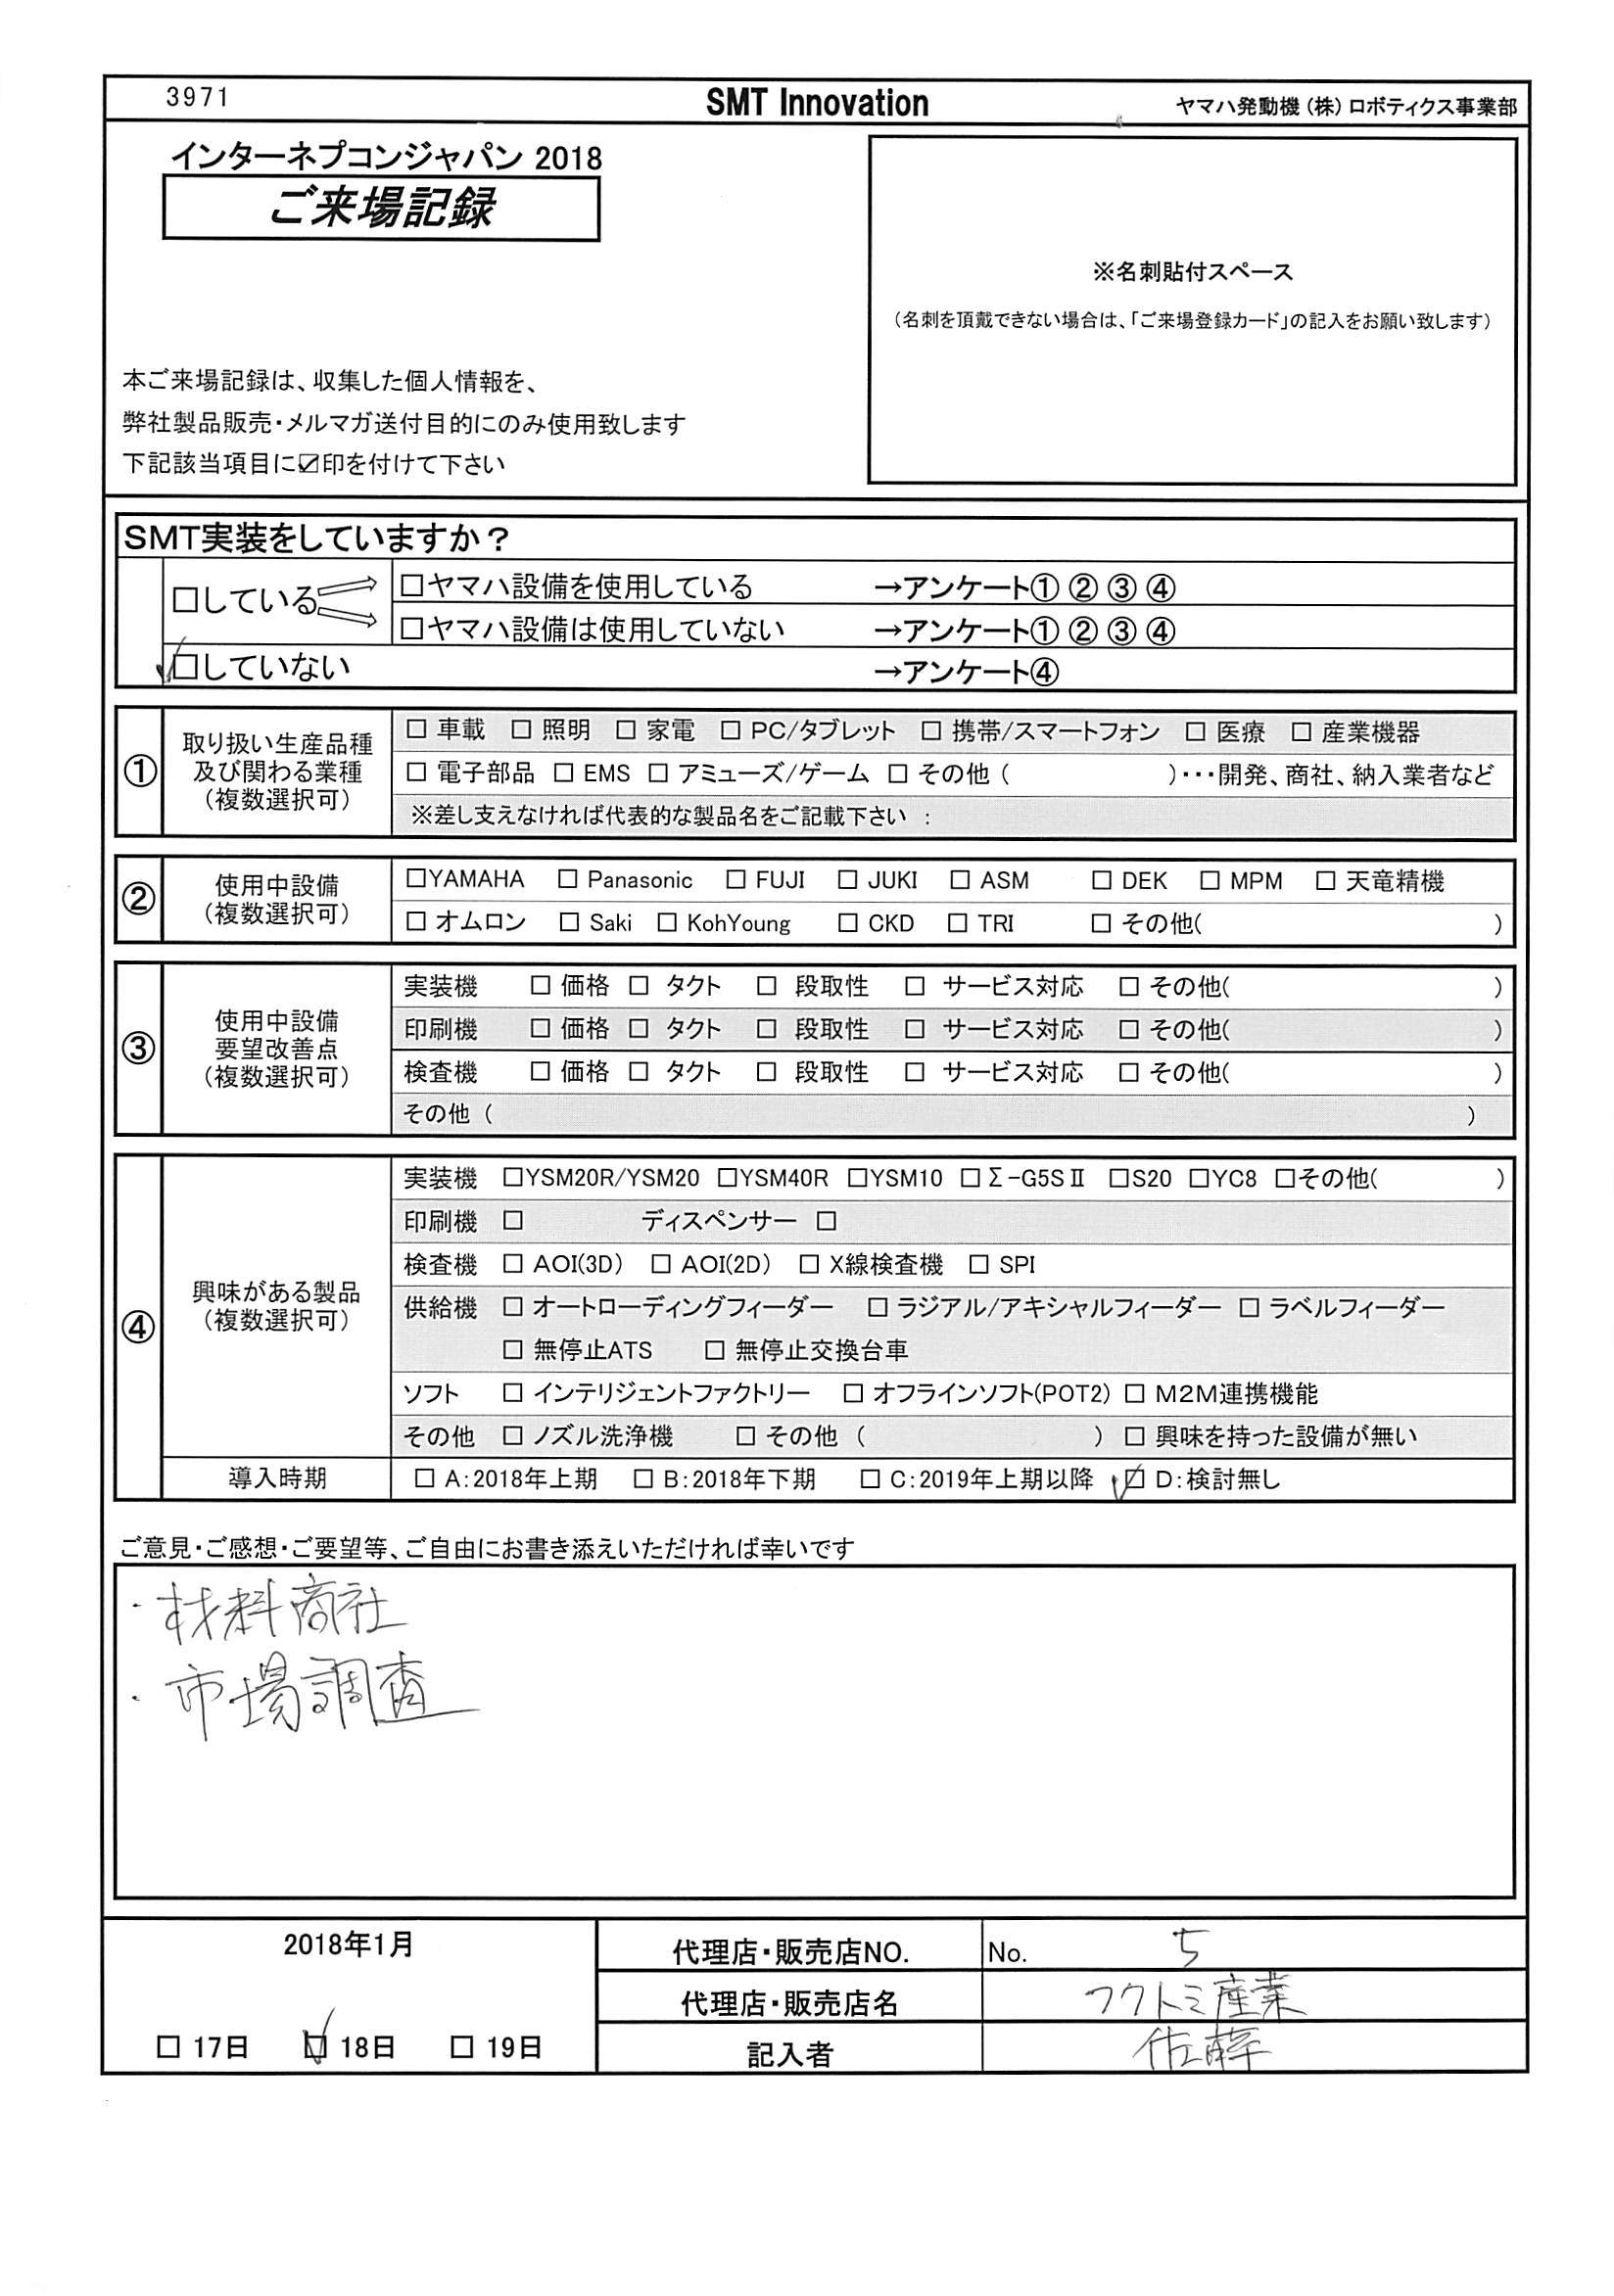 3971
SMT Innovation
ヤマハ発動機（株）ロボティクス事業部
インターネプコンジャパン 2018
ご来場記録
※名刺貼付スペース
（名刺を頂戴できない場合は、「ご来場登録カード」の記入をお願い致します）
本ご来場記録は、収集した個人情報を、
弊社製品販売・メルマガ送付目的にのみ使用致します
下記該当項目に☑印を付けて下さい
SMT実装をしていますか？
□している
□ヤマハ設備を使用している →アンケート① ② ③ ④
□ヤマハ設備は使用していない →アンケート① ② ③ ④
☑していない →アンケート④
①
取り扱い生産品種
及び関わる業種
（複数選択可）
□ 車載 □ 照明 □ 家電 □ PC/タブレット □ 携帯/スマートフォン □ 医療 □ 産業機器
□ 電子部品 □ EMS □ アミューズ/ゲーム □ その他（ ）・・・開発、商社、納入業者など
※差し支えなければ代表的な製品名をご記載下さい ：
②
使用中設備
（複数選択可）
□YAMAHA □ Panasonic □ FUJI □ JUKI □ ASM □ DEK □ MPM □ 天竜精機
□ オムロン □ Saki □ KohYoung □ CKD □ TRI □ その他( )
③
使用中設備
要望改善点
（複数選択可）
実装機 □ 価格 □ タクト □ 段取性 □ サービス対応 □ その他( )
印刷機 □ 価格 □ タクト □ 段取性 □ サービス対応 □ その他( )
検査機 □ 価格 □ タクト □ 段取性 □ サービス対応 □ その他( )
その他（ ）
④
興味がある製品
（複数選択可）
実装機 □YSM20R/YSM20 □YSM40R □YSM10 □Σ-G5SⅡ □S20 □YC8 □その他( )
印刷機 □ ディスペンサー □
検査機 □ AOI(3D) □ AOI(2D) □ X線検査機 □ SPI
供給機 □ オートローディングフィーダー □ ラジアル/アキシャルフィーダー □ ラベルフィーダー
□ 無停止ATS □ 無停止交換台車
ソフト □ インテリジェントファクトリー □ オフラインソフト(POT2) □ M2M連携機能
その他 □ ノズル洗浄機 □ その他（ ） □ 興味を持った設備が無い
導入時期 □ A:2018年上期 □ B:2018年下期 □ C:2019年上期以降 ☑ D:検討無し
ご意見・ご感想・ご要望等、ご自由にお書き添えいただければ幸いです
・材料商社
・市場調査
2018年1月
□ 17日 ☑ 18日 □ 19日
代理店・販売店NO. No. 5
代理店・販売店名 フクトミ産業
記入者 佐藤